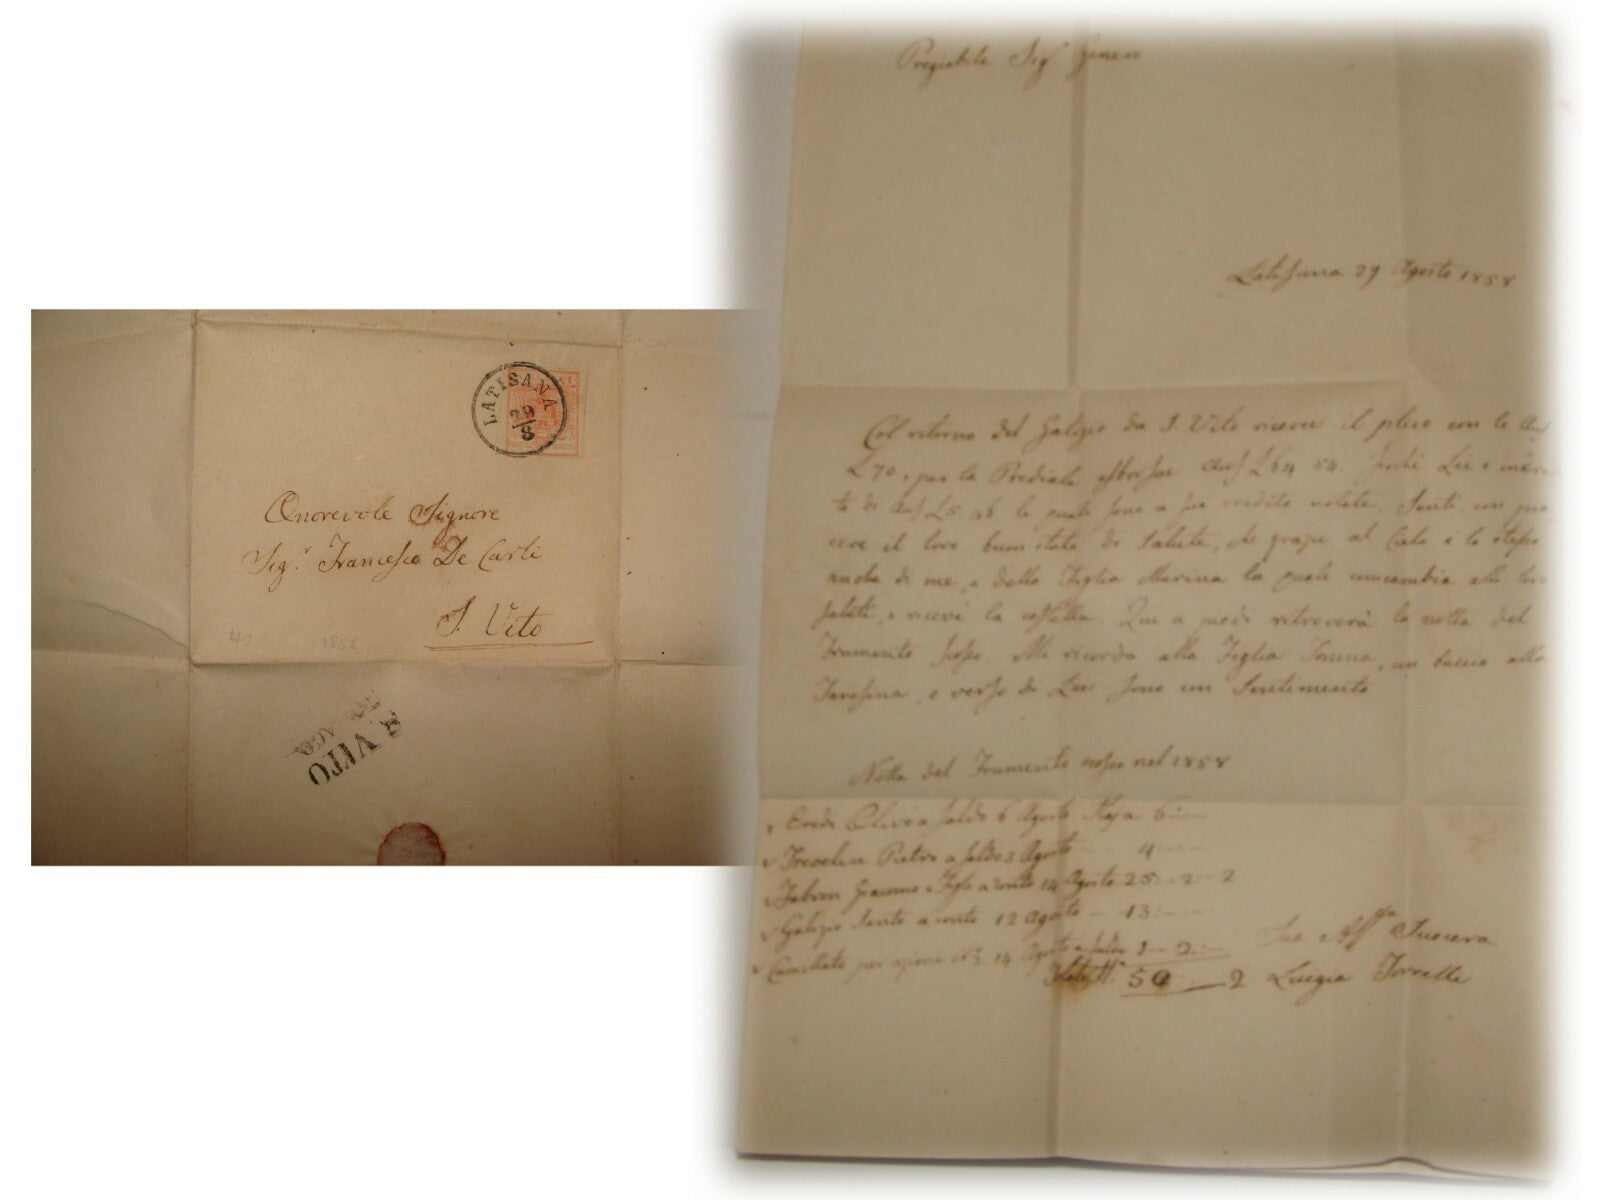 LATISANA
29
8
Onorevole Signore
Sig.r Francesco De Carli
S. Vito
40 1858
S. VITO
AGO.
Pregiabile Sig.r Genero
Latisana 29 Agosto 1858
Col ritorno del Galizio da S. Vito ricevei il plico con le Aus
L 70, per la Prediale esborsai Aus L 64 54.
te di Aus L 5. le quali sono a suo credito notate. Sentì con pia
cere il loro buon stato di salute, che grazie al Cielo è lo stesso
anche di me, e della Figlia Marina la quale
salute, e ricevè la Qui a piedi ritroverà la notta del
Frumento scosso. Mi ricorda alla Figlia un baccio alla
e verso di Lei sono con Sentimento
Notta del Frumento scosso nel 1858
Eredi Olivo a saldo 6 Agosto Staja 6
Trevelin Pietro a saldo 8 Agosto 4
Fabron Giacomo e Figli a conto 14 Agosto 25 2 2
Galizio Santo a conto 12 Agosto 13
14 Agosto a saldo 1 2
50 2
Sua Aff.ma Suocera
Luigia Torrelli